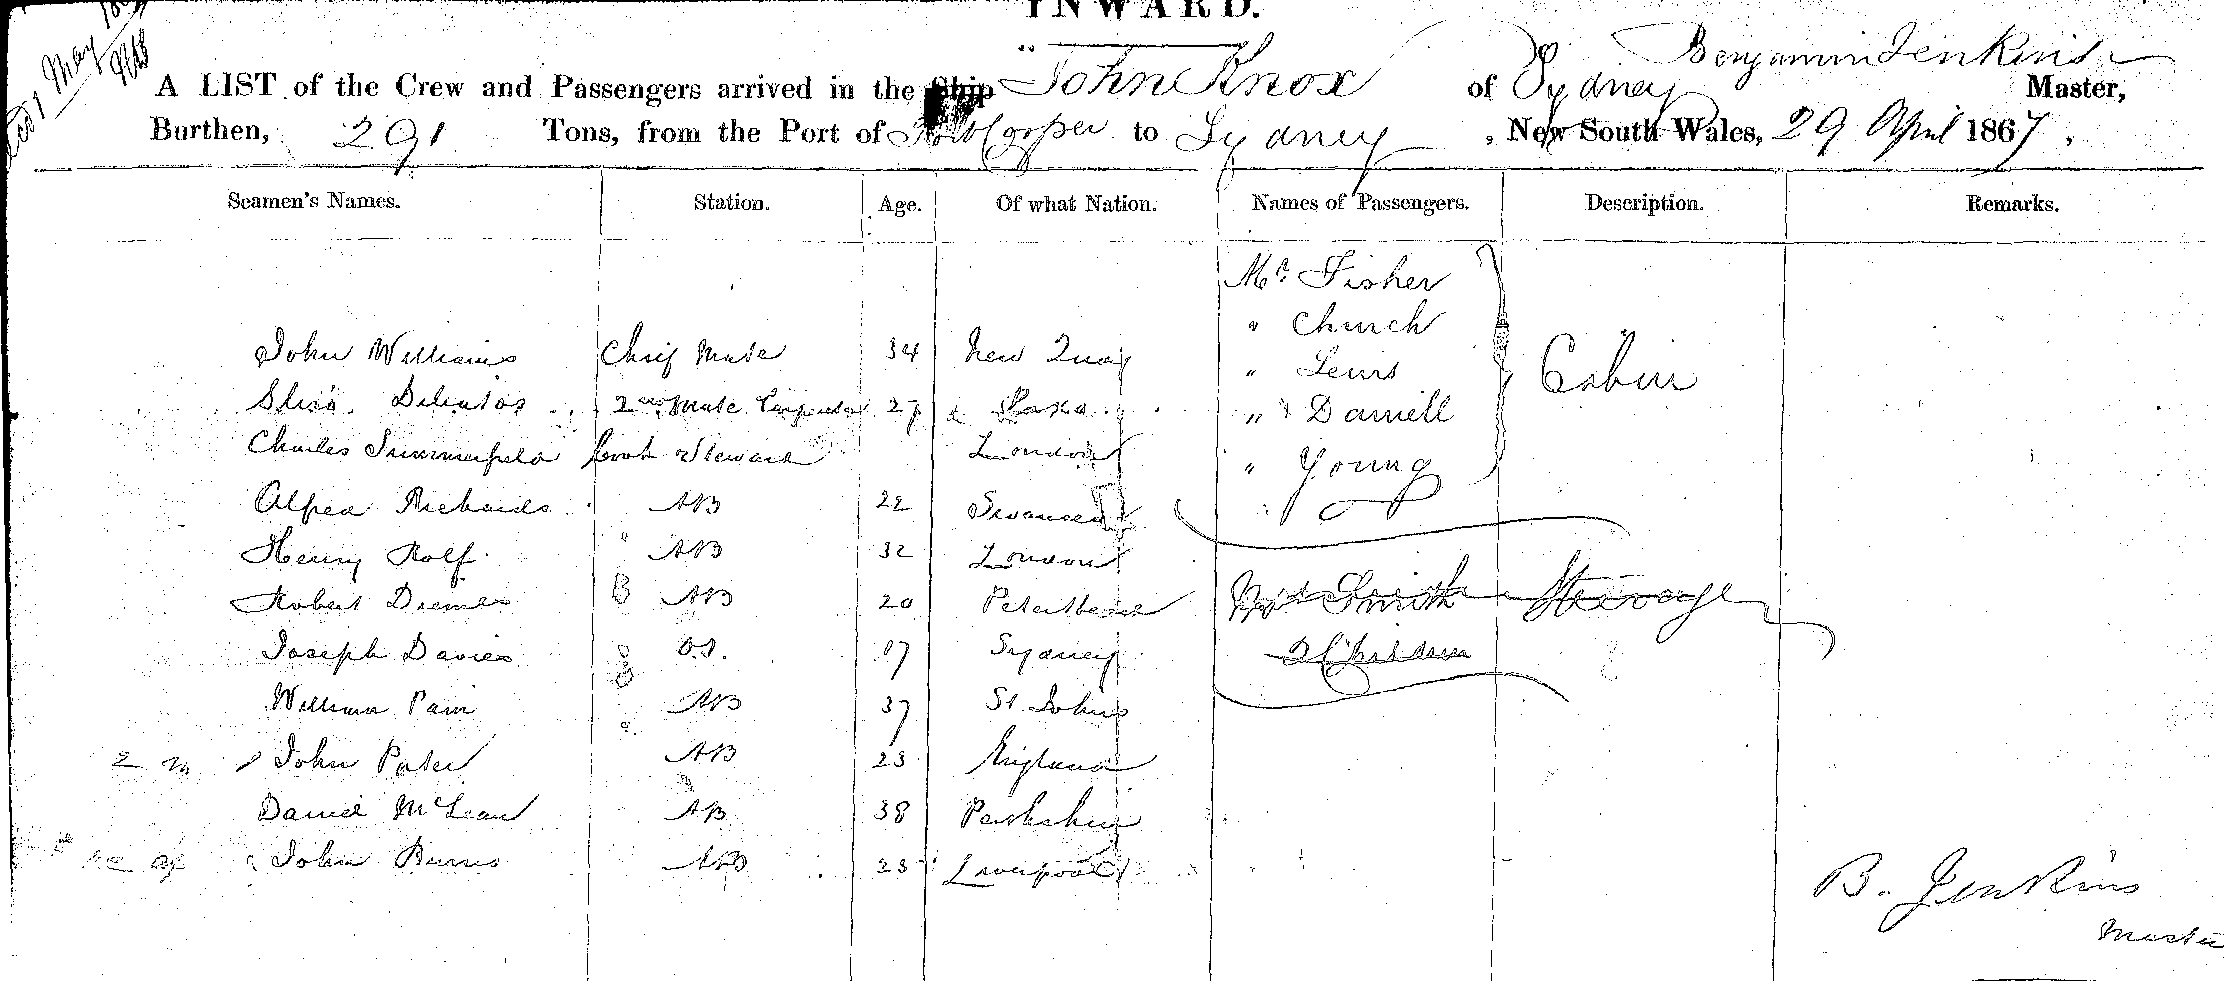 INWARD.
A LIST of the Crew and Passengers arrived in the Ship John Knox of Sydney Benjamin Jenkins Master,
Burthen, 291 Tons, from the Port of Cooper to Sydney, New South Wales, 29 April 1867.
Seamen's Names. Station. Age. Of what Nation. Names of Passengers. Description. Remarks.
Mr. Fisher
" Church
John Williams Chief Mate 34 New Quay " Lewis Cabin
2nd Mate Carpenter 27 " Daniell
Charles Summerfield Cook & Steward London " Young
Alfred Richards AB 22 Swansea
Henry Rolf AB 32 London
Robert AB 20 Peterhead Mrs Smith Steerage
Joseph Davies O.S. 17 Sydney 2 Children
William Pain AB 37 St Johns
John AB 23 England
Daniel McLean AB 38 Perthshire
John Burns AB 23 Liverpool
B. Jenkins
Master